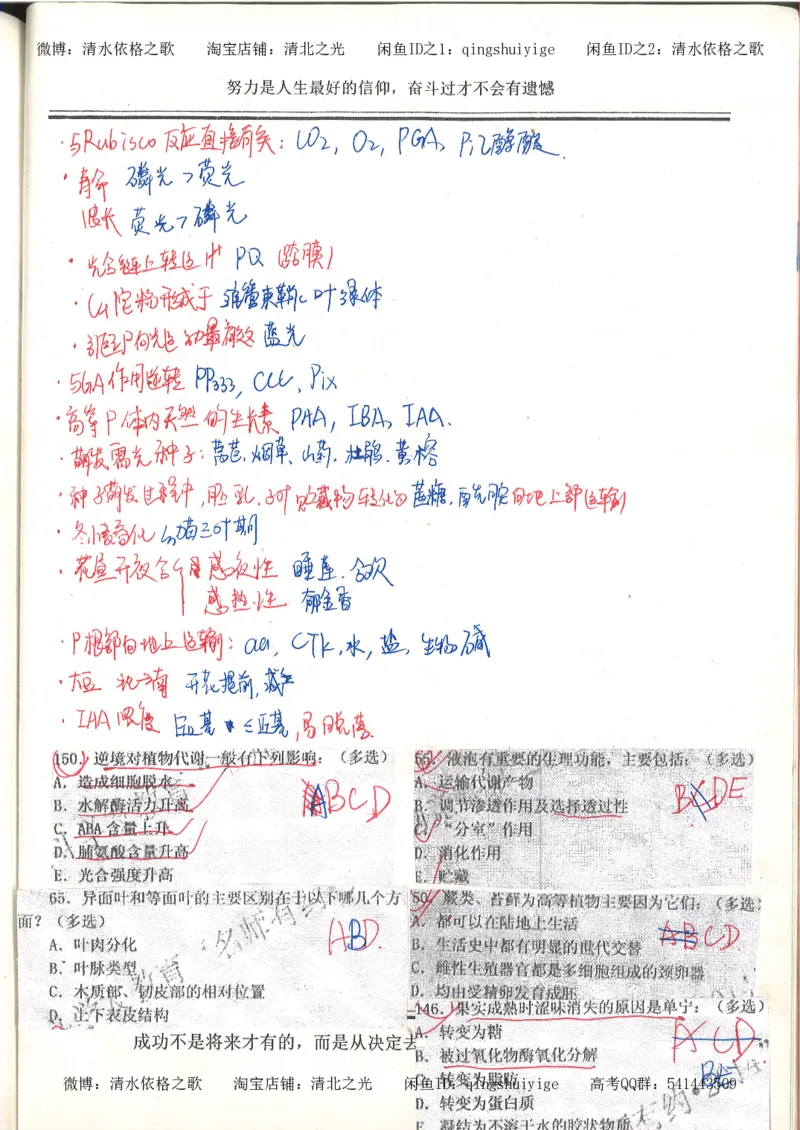 微博：清水依格之歌 淘宝店铺：清北之光 闲鱼ID之1：qingshuiyige 闲鱼ID之2：清水依格之歌
努力是人生最好的信仰，奋斗过才不会有遗憾
·与Rubisco反应直接有关：CO2，O2，PGA，Pi乙醇酸.
·寿命 磷光>荧光
波长 荧光>磷光
·光合链上转运H PQ（跨膜）
·C4淀粉形成于 维管束鞘C叶绿体
·引起P向光运动最有效 蓝光
·与GA作用逆转 PP333，CCC、Pix
·高等P体内天然的生长素 PAA，IBA，IAA.
·萌发需光种子：莴苣.烟草、山药.杜鹃.黄榕
·种子萌发过程中，胚乳.子叶贮藏物转化为蔗糖，再 向地上部运输
·冬小麦春化 幼苗三叶期
·花昼开夜合 感夜性 睡莲.合欢
感热性 郁金香
·P根部向地上运输：aa，CTK，水，盐，生物碱
·大豆 北→南 开花提前，减产
·IAA浓度 ，易脱落
150.逆境对植物代谢一般有下列影响：（多选）
A．造成细胞脱水
B．水解酶活力升高
C．ABA 含量上升
D．脯氨酸含量升高
E．光合强度升高
ABCD
55．液泡有重要的生理功能，主要包括：（多选）
A．运输代谢产物
B．调节渗透作用及选择透过性
C．“分室”作用
D．消化作用
E．贮藏
BCDE
65．异面叶和等面叶的主要区别在于以下哪几个方
面？（多选）
A．叶肉分化
B．叶脉类型
C．木质部、韧皮部的相对位置
D．上下表皮结构
ABD.
50．蕨类、苔藓为高等植物主要因为它们：（多选）
A．都可以在陆地上生活
B．生活史中都有明显的世代交替
C．雌性生殖器官都是多细胞组成的颈卵器
D．均由受精卵发育成胚
ABCD
146．果实成熟时涩味消失的原因是单宁：（多选）
A．转变为糖
B．被过氧化物酶氧化分解
C．转变为脂肪
D．转变为蛋白质
E．凝结为不溶于水的胶状物质
成功不是将来才有的，而是从决定去
微博：清水依格之歌 淘宝店铺：清北之光 闲鱼ID之1：qingshuiyige 高考QQ群：541443509